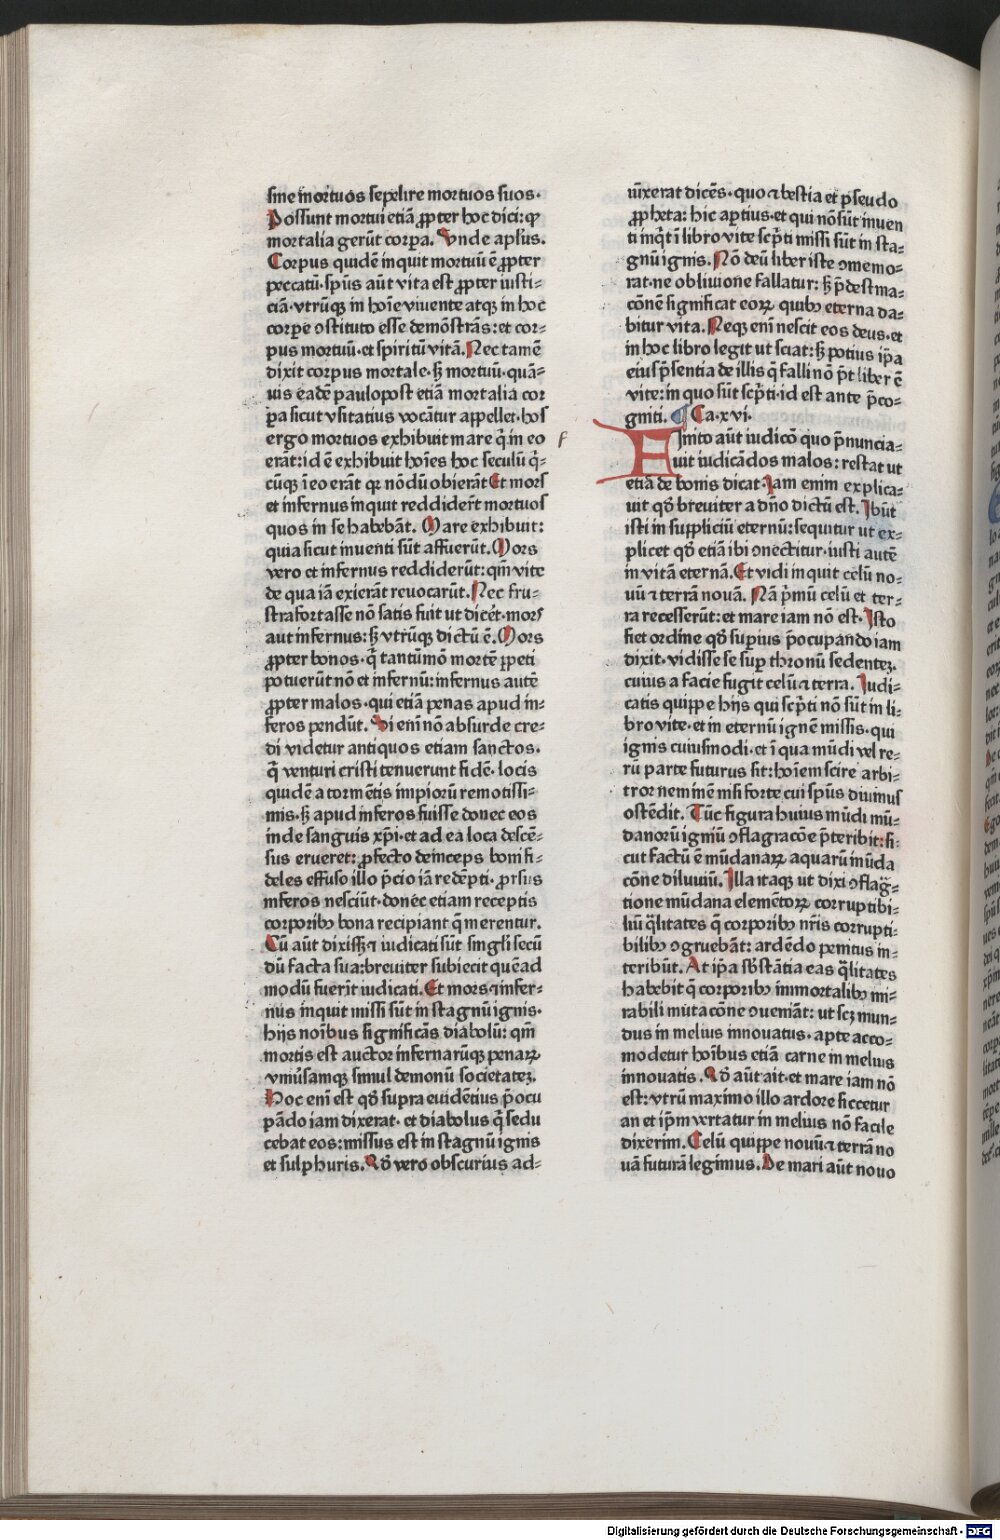 sine mortuos sepelire mortuos suos.
Possunt mortui etiā ꝓpter hoc dici: ꝙ
mortalia gerūt corꝑa. Vnde apl'us.
Corpus quidē inquit mortuū ē ꝓpter
peccatū. sp̄us aūt vita est ꝓpter iusti⸗
ciā. vtrūqꝫ in hoīe viuente atqꝫ in hoc
corꝑe ꝯstituto esse demōstrās: et cor⸗
pus mortuū. et spiritū vitā. Nec tamē
dixit corpus mortale. sꝫ mortuū. quā⸗
uis eadē paulopost etiā mortalia cor
ꝑa sicut vsitatius vocātur appellet. hos
ergo mortuos exhibuit mare q̄ in eo
erāt: id ē exhibuit hoīes hoc seculū q̄⸗
cūqꝫ ī eo erāt qꝛ nōdū obierāt Et mors
et infernus inquit reddiderūt mortuos
quos in se habebāt. Mare exhibuit:
quia sicut inuenti sūt affuerūt. Mors
vero et infernus reddiderūt: qm̄ vite
de qua iā exierāt reuocarūt. Nec fru⸗
stra fortasse nō satis fuit ut dicēt. mors
aut infernus: sꝫ vtrūqꝫ dictū ē. Mors
ꝓpter bonos. q̄ tantūmō mortē ꝑpeti
potuerūt nō et infernū: infernus autē
ꝓpter malos. qui etiā penas apud in⸗
feros pendūt. Si enī nō absurde cre⸗
di videtur antiquos etiam sanctos.
q̄ venturi cristi tenuerunt fidē. locis
quidē a tormētis impiorū remotissi⸗
mis. sꝫ apud inferos fuisse donec eos
inde sanguis xp̄i. et ad ea loca descē⸗
sus erueret: ꝓfecto deinceps boni fi⸗
deles effuso illo p̄cio iā redēpti. ꝓrsus
inferos nesciūt. donec etiam receptis
corporibꝫ bona recipiant q̄ merentur.
Cū aūt dixissꝫ ⁊ iudicati sūt singl'i secū
dū facta sua: breuiter subiecit quēad
modū fuerīt iudicati. Et mors ⁊ infer⸗
nus inquit missi sūt in stagnū ignis.
hijs noībus significās diabolū: qm̄
mortis est auctor infernarūqꝫ penaꝝ
vniūsamqꝫ simul demonū societateꝫ.
Hoc enī est qd̄ supra euidētius p̄ocu
pādo iam dixerat. et diabolus q̄ sedu
cebat eos: missus est in stagnū ignis
et sulphuris. Qd̄ vero obscurius ad⸗
iūxerat dicēs. quo ⁊ bestia et pseudo
ꝓpheta: hic aꝑtius. et qui nō sūt inuen
ti inq̄t ī libro vite scp̄ti missi sūt in sta⸗
gnū ignis. Nō deū liber iste ꝯmemo⸗
rat. ne obliuione fallatur: sꝫ p̄destina⸗
cōnē significat eoꝝ quibꝫ eterna da⸗
bitur vita. Neqꝫ enī nescit eos deus. et
in hoc libro legit ut sciat: sꝫ potius ip̄a
eius p̄sentia de illis q̄ falli nō p̄t liber ē
vite: in quo sūt scp̄ti. id est ante p̄co⸗
gniti. Ca. xvi.
Finito aūt iudicō quo p̄nuncia⸗
uit iudicādos malos: restat ut
etiā de bonis dicat. Iam enim explica⸗
uit qd̄ breuiter a dn̄o dictū est. Ibūt
isti in suppliciū eternū: sequitur ut ex⸗
plicet qd̄ etiā ibi ꝯnectitur. iusti autē
in vitā eternā. Et vidi inquit celū no⸗
uū ⁊ terrā nouā. Nā p̄mū celū et ter⸗
ra recesserūt: et mare iam nō est. Isto
fiet ordine qd̄ superius p̄ocupando iam
dixit. vidisse se suꝑ thronū sedenteꝫ.
cuius a facie fugit celū ⁊ terra. Iudi⸗
catis quippe hijs qui scp̄ti nō sūt in li⸗
bro vite. et in eternū ignē missis. qui
ignis cuiusmodi. et ī qua mūdi vel re⸗
rū parte futurus sit: hoīem scire arbi⸗
tror neminē nisi forte cui sp̄us diuinus
ostēdit. Tūc figura huius mūdi mū⸗
danorū igniū ꝯflagracōe p̄teribit: si⸗
cut factū ē mūdanaꝝ aquarū inūda
cōne diluuiū. Illa itaqꝫ ut dixi ꝯflag̃⸗
tione mūdana elemētoꝝ corruptibi⸗
liū q̄litates q̄ corporibꝫ nr̄is corrupti⸗
bilibꝫ ꝯgruebāt: ardēdo penitus in⸗
teribūt. At ip̄a sb̄stātia eas q̄litates
habebit q̄ corporibꝫ immortalibꝫ mi⸗
rabili mutacōne ꝯueniāt: ut scꝫ mun⸗
dus in melius innouatus. apte acco⸗
modetur hoībus etiā carne in melius
innouatis. Qd̄ aūt ait. et mare iam nō
est: vtrū maximo illo ardore siccetur
an et ip̄m vertatur in melius nō facile
dixerim. Celū quippe nouū ⁊ terrā no
uā futurā legimus. De mari aūt nouo
f
Digitalisierung gefördert durch die Deutsche Forschungsgemeinschaft - DFG